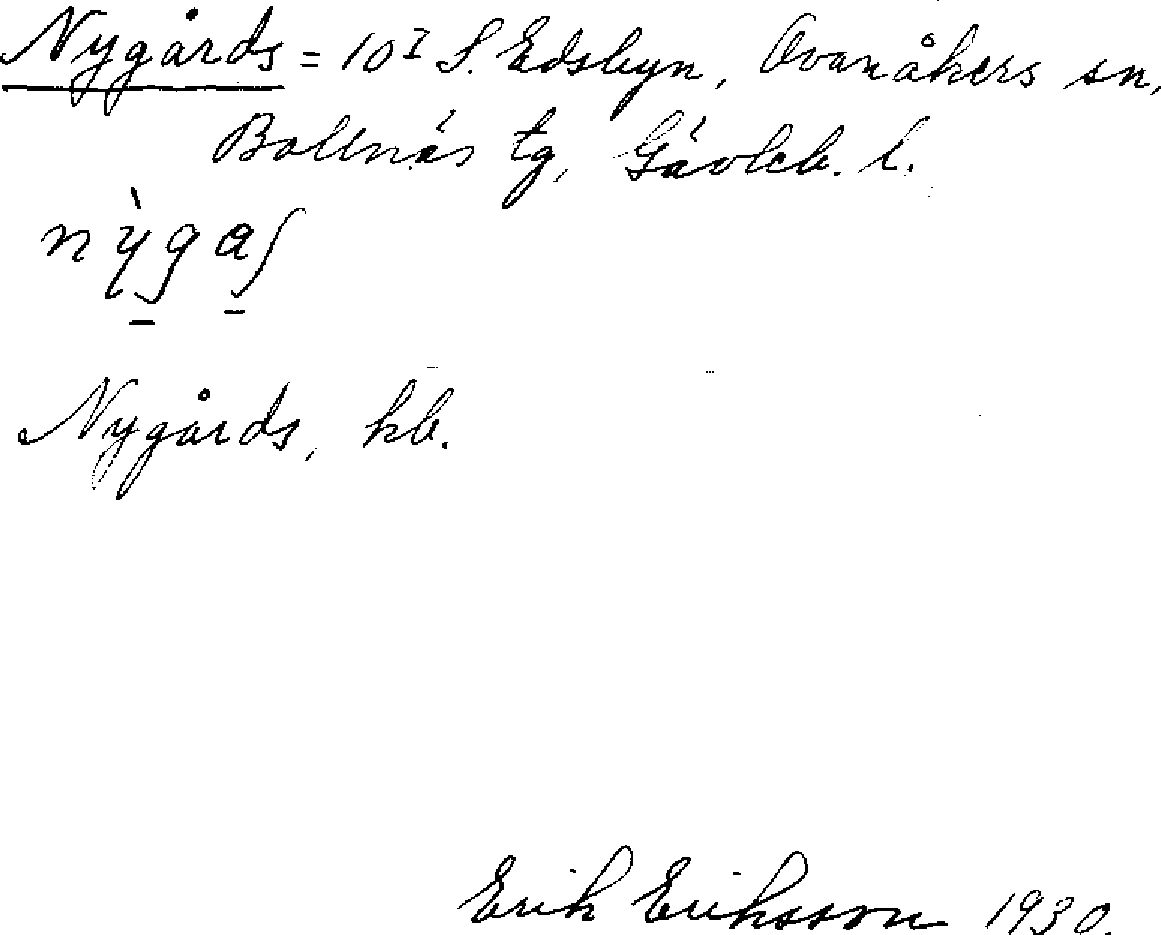 Nygårds = 10 I S. Edsbyn, Ovanåkers sn,
Bollnäs tg, Gävleb. l.
nỳgaʃ
Nygårds, kb.
Erik Eriksson 1930.